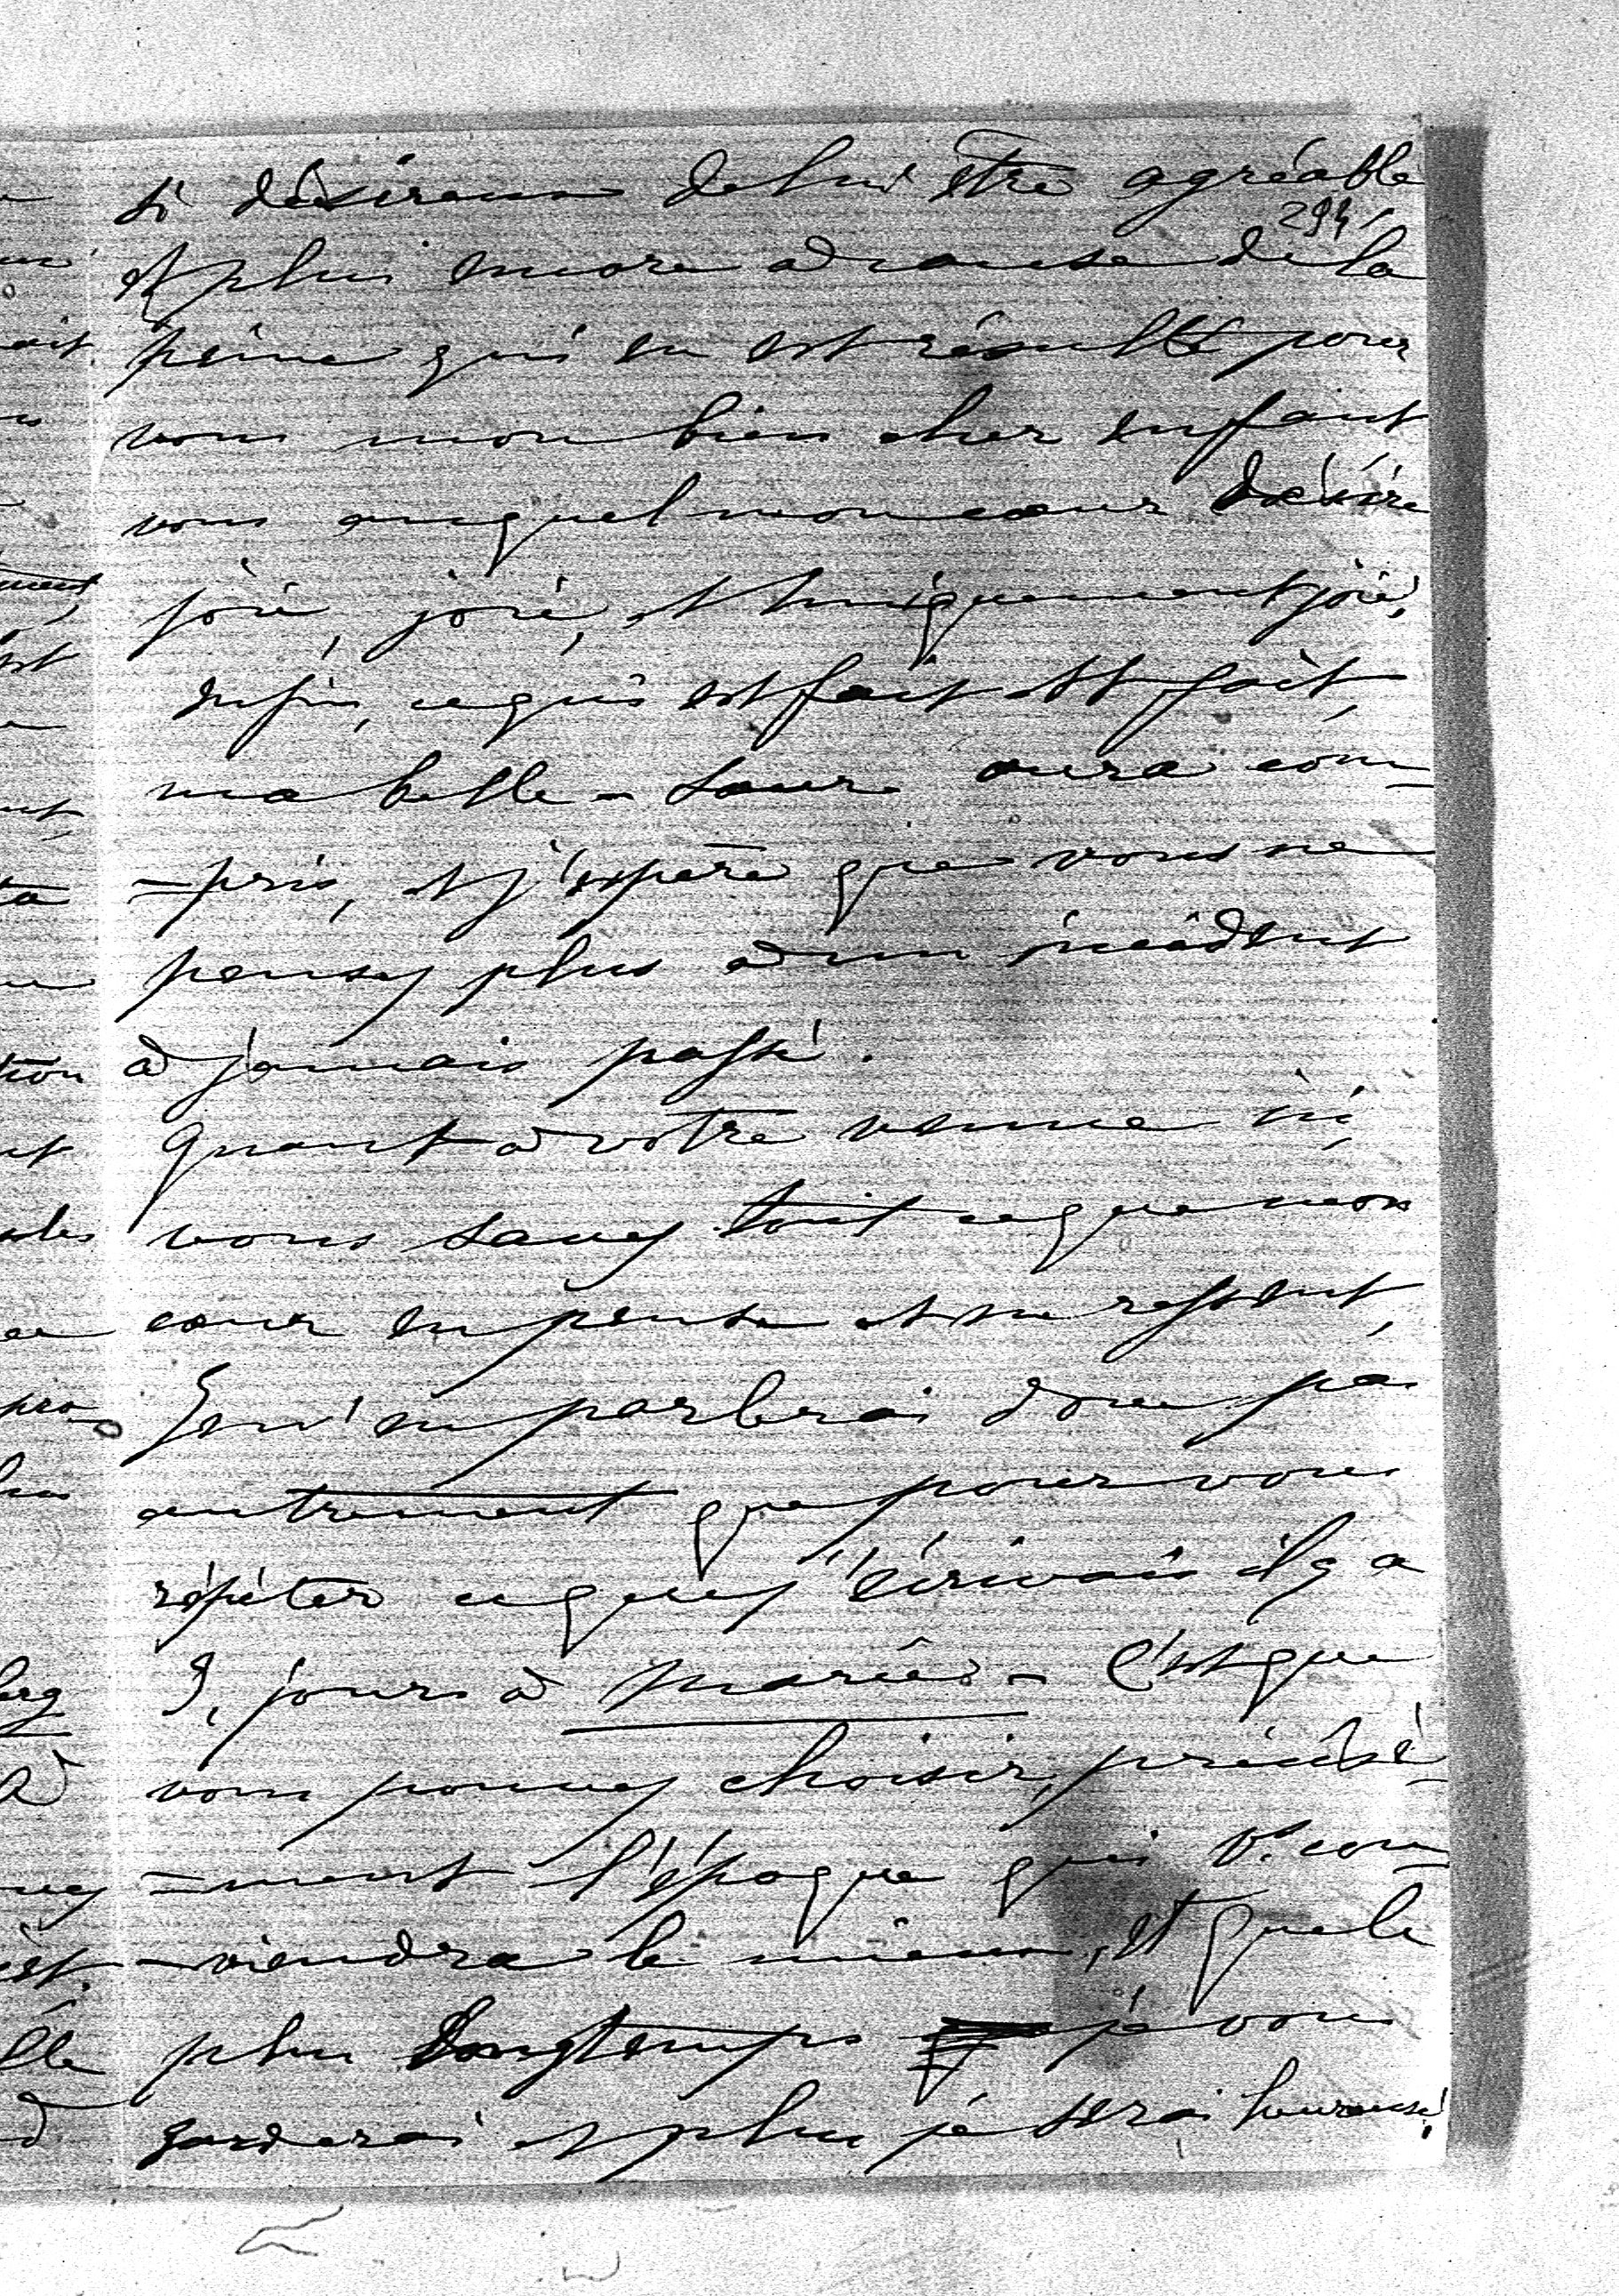 si désireuse de lui être agréable
294
et plus encore à cause de la
peine qui en est résulté pour
vous mon bien cher enfant
vous auquel mon cœur désire
joie, joie, et uniquement joie,
enfin, ce qui est fait est fait,
ma belle-sœur aura com-
-pris, et j'espère que vous ne
pensez plus à un incident
à jamais passé.
Quant à votre venue ici,
vous savez tout ce que mon
cœur en pense et en ressent,
Je n'en parlerai donc pas
autrement que pour vous
répéter ce que j'écrivais il y a
3, jours à Marie - C'est que
vous pouvez choisir, précisé-
-ment l'époque qui vs. con-
-viendra le mieux, et que le
plus longtemps je vous
garderai et plus je serai heureuse!